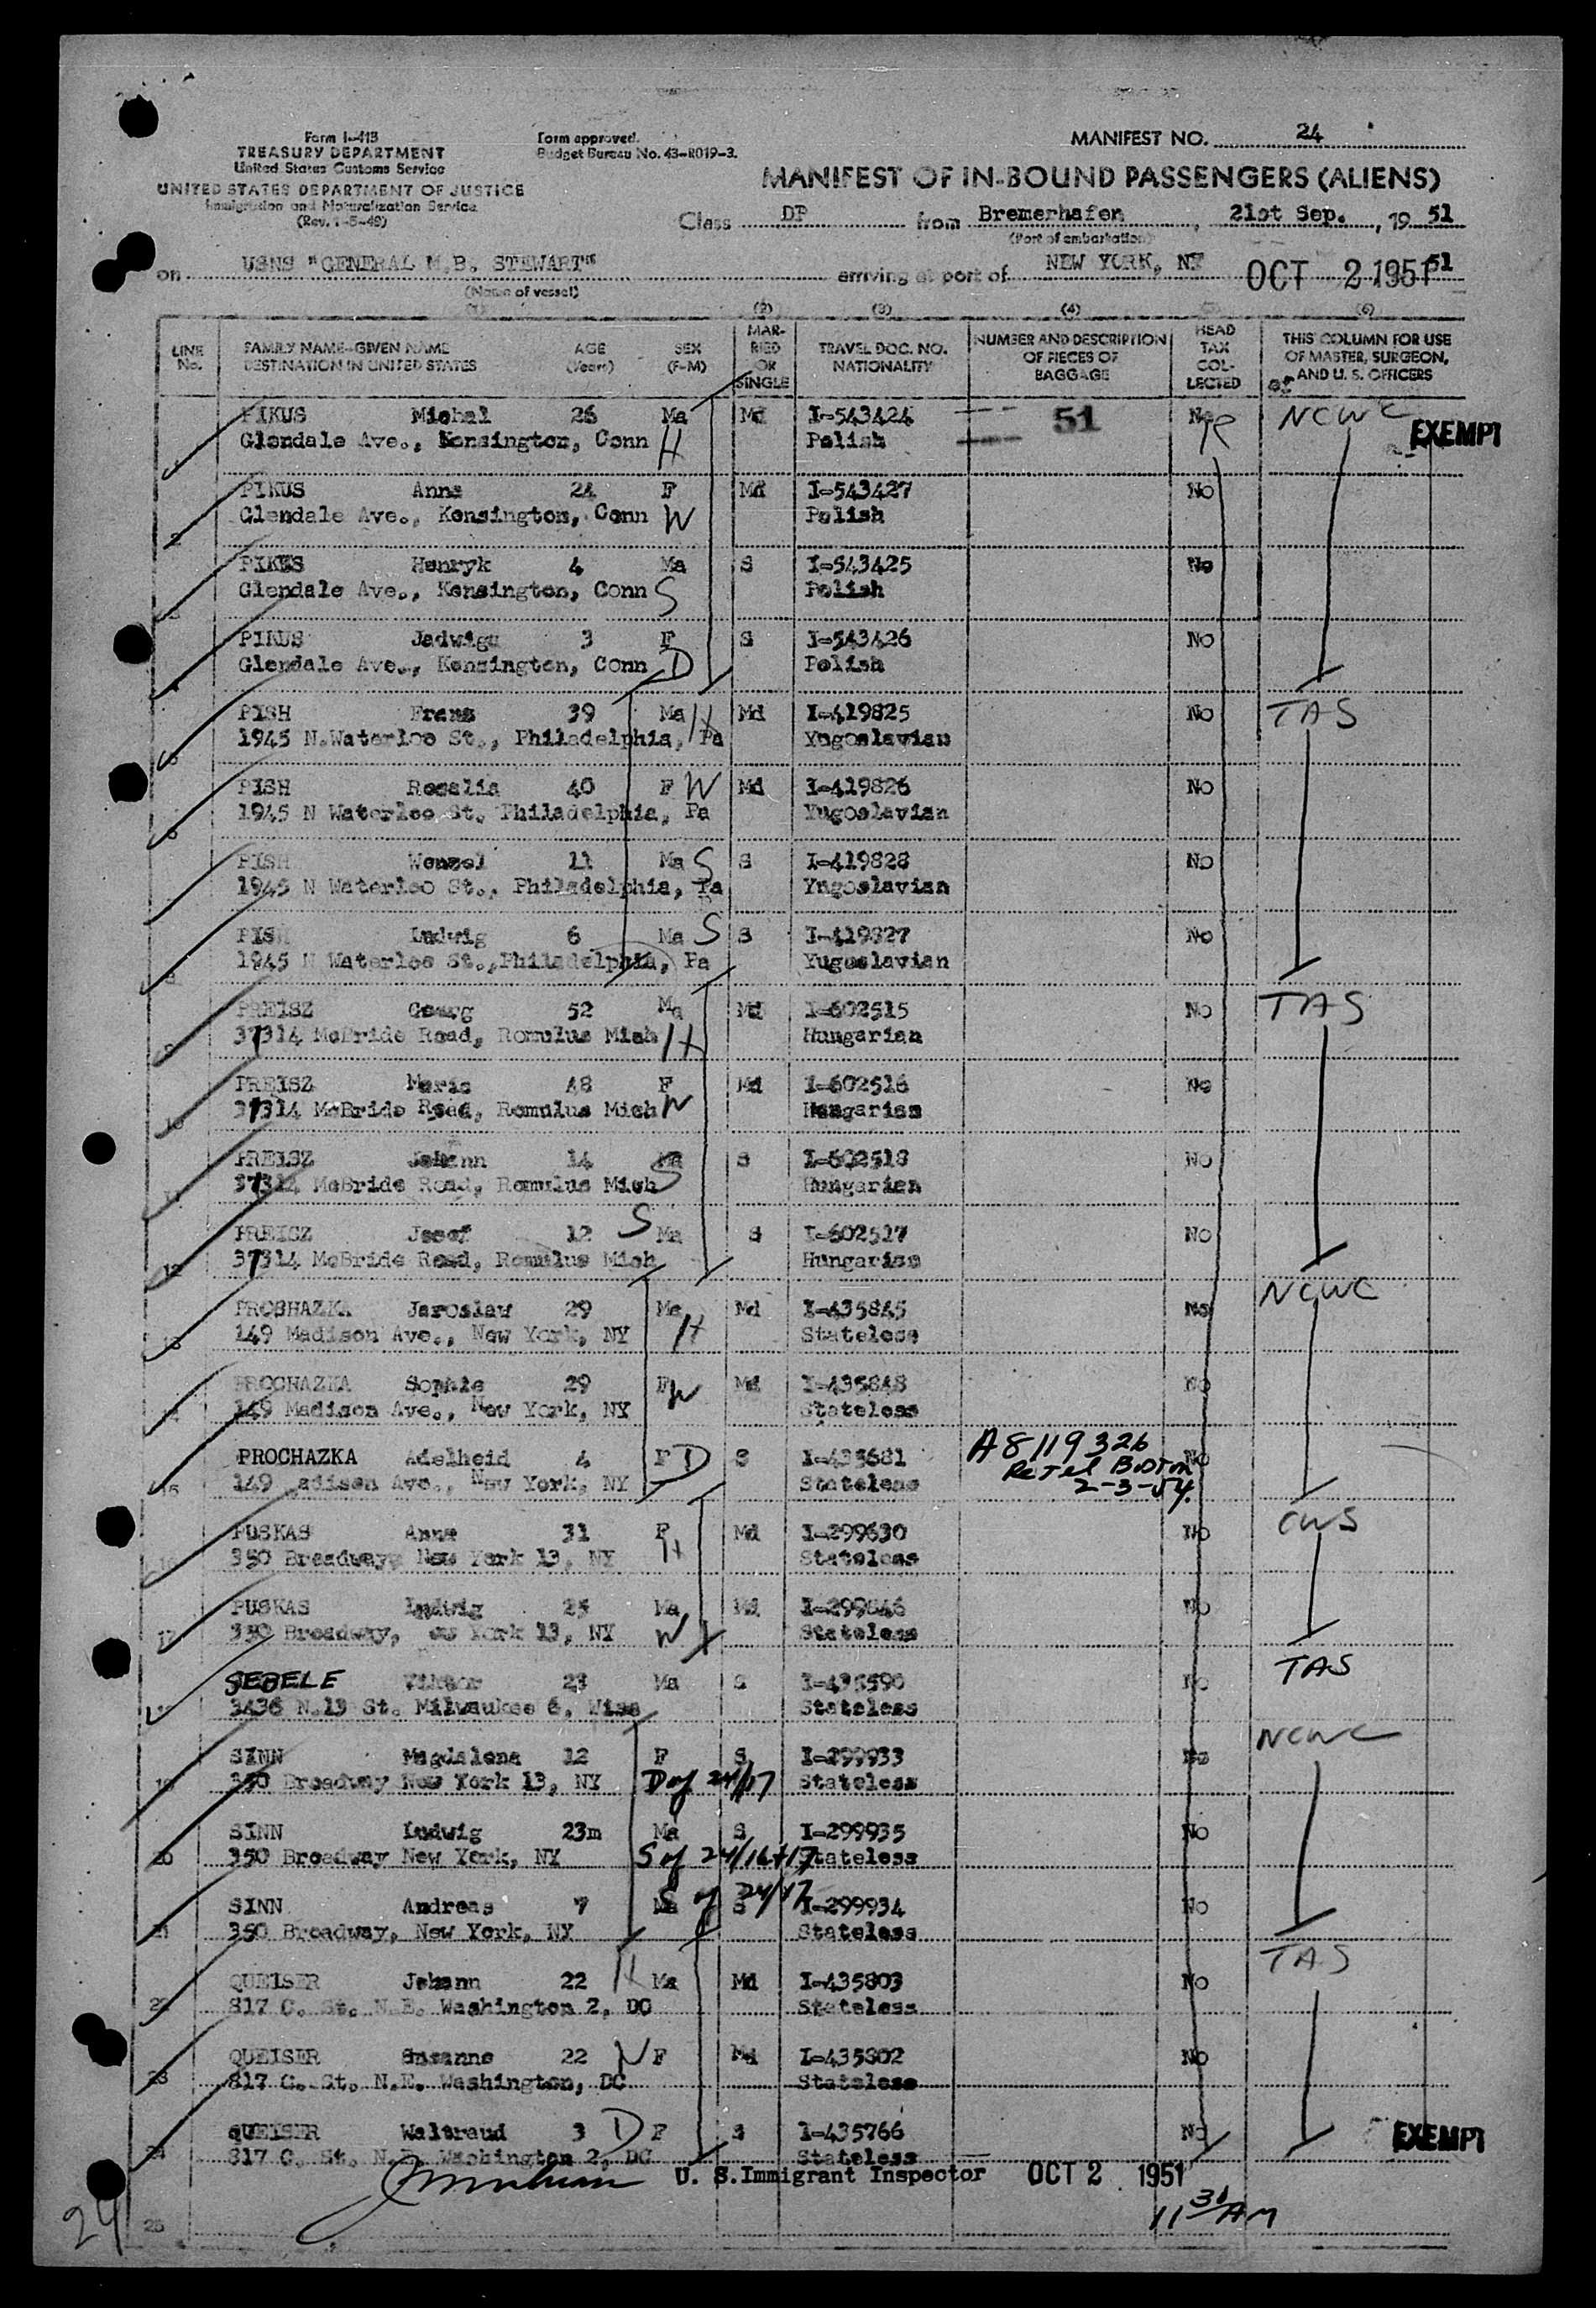 Form I-413
TREASURY DEPARTMENT
United States Customs Service
UNITED STATES DEPARTMENT OF JUSTICE
Immigration and Naturalization Service
(Rev. 1-5-48)
Form approved.
Budget Bureau No. 43-R019-3.
MANIFEST NO. 24
MANIFEST OF IN-BOUND PASSENGERS (ALIENS)
Class DP from Bremerhafen, 21st Sep., 19 51
(Port of embarkation)
on USNS "GENERAL M.B. STEWART" arriving at port of NEW YORK, NY OCT 2 1951 51
(Name of vessel)
(1) (2) (3) (4) (5) (6)
LINE No. FAMILY NAME-GIVEN NAME DESTINATION IN UNITED STATES AGE (Years) SEX (F-M) MAR-RIED OR SINGLE TRAVEL DOC. NO. NATIONALITY NUMBER AND DESCRIPTION OF PIECES OF BAGGAGE HEAD TAX COL-LECTED THIS COLUMN FOR USE OF MASTER, SURGEON, AND U. S. OFFICERS
1 PIKUS Michal 26 Ma Md I-543424 51 No NCWC EXEMPT
Glendale Ave., Kensington, Conn H Polish R
2 PIKUS Anna 24 F Md I-543427 No
Glendale Ave., Kensington, Conn W Polish
3 PIKUS Henryk 4 Ma S I-543425 No
Glendale Ave., Kensington, Conn S Polish
4 PIKUS Jadwiga 3 F S I-543426 No
Glendale Ave., Kensington, Conn D Polish
5 PISH Franz 39 Ma H Md I-419825 No TAS
1945 N.Waterloo St., Philadelphia, Pa Yugoslavian
6 PISH Rosalia 40 F W Md I-419826 No
1945 N Waterloo St. Philadelphia, Pa Yugoslavian
7 PISH Wenzel 11 Ma S S I-419828 No
1945 N Waterloo St., Philadelphia, Pa Yugoslavian
8 PISH Ludwig 6 Ma S S I-419827 No
1945 N Waterloo St.,Philadelphia, Pa Yugoslavian
9 PREISZ Georg 52 Ma Md I-602515 No TAS
37314 McBride Road, Romulus Mich H Hungarian
10 PREISZ Maria 48 F Md I-602516 No
37314 McBride Road, Romulus Mich W Hungarian
11 PREISZ Johann 14 Ma S I-602518 No
37314 McBride Road, Romulus Mich S Hungarian
12 PREISZ Josef 12 S Ma S I-602517 No
37314 McBride Road, Romulus Mich Hungarian
13 PROSHAZKA Jaroslaw 29 Ma Md I-435845 No NCWC
149 Madison Ave., New York, NY H Stateless
14 PROCHAZKA Sophie 29 F W Md I-435848 No
149 Madison Ave., New York, NY Stateless
15 PROCHAZKA Adelheid 4 F D S I-435681 A8119326 No
149 adison Ave., New York, NY Stateless Re Tel Boston
2-3-54.
16 PUSKAS Anna 31 F Md I-299630 No CWS
350 Broadway, New York 13, NY H Stateless
17 PUSKAS Ludwig 25 Ma Md I-299846 No
350 Broadway, ew York 13, NY W Stateless
SEBELE Viktor 23 Ma S I-435590 No TAS
3436 N.13 St. Milwaukee 6, Wisc Stateless
19 SINN Magdalena 12 F S I-299933 No NCWC
350 Broadway New York 13, NY D of 24/17 Stateless
20 SINN Ludwig 23m Ma S I-299935 No
350 Broadway New York, NY S of 24/16+17 Stateless
21 SINN Andreas 7 Ma S of 24/17 S I-299934 No
350 Broadway, New York, NY Stateless
22 QUEISER Johann 22 H Ma Md I-435803 No TAS
817 C. St. N.E. Washington 2, DC Stateless
23 QUEISER Susanne 22 W F Md I-435802 No
817 C. St. N.E. Washington, DC Stateless
24 QUEISER Waltraud 3 D F S I-435766 No EXEMPT
817 C. St. N.E. Washington 2, DC Stateless
U. S. Immigrant Inspector OCT 2 1951
11 30 AM
24
25